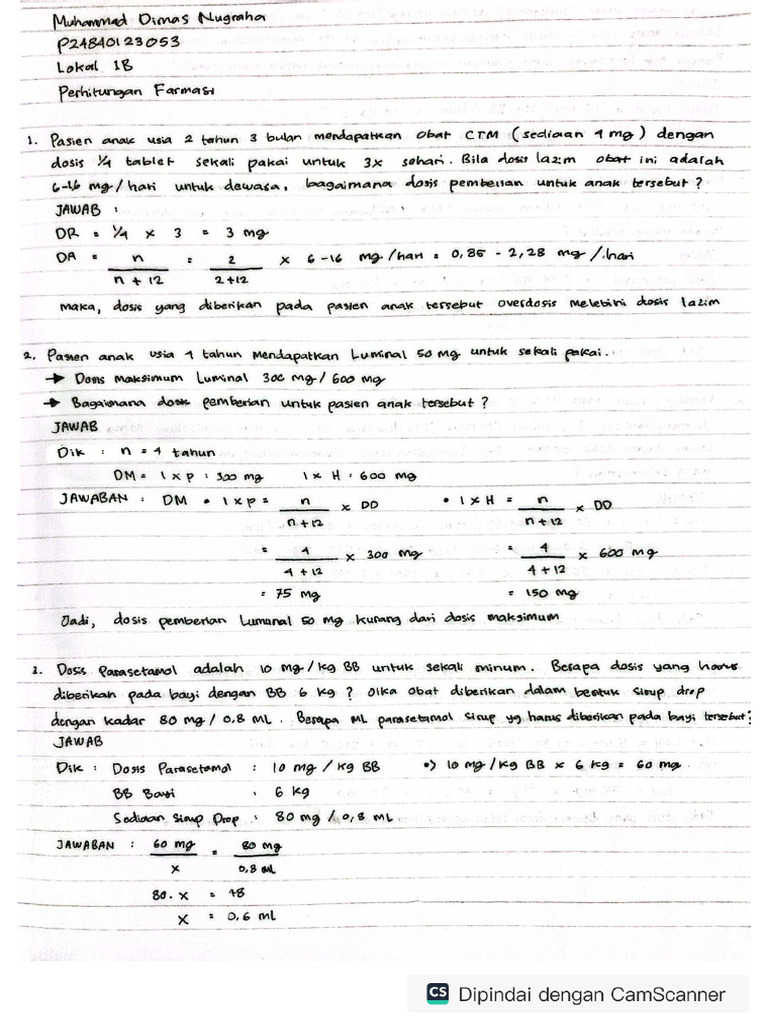 Muhammad Dimas Nugraha
P24840123053
Lokal 1B
Perhitungan Farmasi
1. Pasien anak usia 2 tahun 3 bulan mendapatkan obat CTM (sediaan 4 mg) dengan
dosis 1/4 tablet sekali pakai untuk 3x sehari. Bila dosis lazim obat ini adalah
6-16 mg/hari untuk dewasa, bagaimana dosis pemberian untuk anak tersebut?
JAWAB :
DR = 1/4 x 3 = 3 mg
DA = n / n + 12 = 2 / 2+12 x 6-16 mg/hari = 0,85 - 2,28 mg/hari
maka, dosis yang diberikan pada pasien anak tersebut overdosis melebihi dosis lazim
2. Pasien anak usia 4 tahun mendapatkan Luminal 50 mg untuk sekali pakai.
→ Dosis maksimum Luminal 300 mg/600 mg
→ Bagaimana dosis pemberian untuk pasien anak tersebut?
JAWAB
Dik : n = 4 tahun
DM = 1 x p : 300 mg 1 x H : 600 mg
JAWABAN : DM • 1 x p = n / n+12 x DD • 1 x H = n / n+12 x DD
= 4 / 4 + 12 x 300 mg = 4 / 4 + 12 x 600 mg
= 75 mg = 150 mg
Jadi, dosis pemberian Lumunal 50 mg kurang dari dosis maksimum
3. Dosis Parasetamol adalah 10 mg/kg BB untuk sekali minum. Berapa dosis yang harus
diberikan pada bayi dengan BB 6 kg? Jika obat diberikan dalam bentuk sirup drop
dengan kadar 80 mg/0,8 mL. Berapa mL parasetamol sirup yg harus diberikan pada bayi tersebut?
JAWAB
Dik : Dosis Parasetamol : 10 mg/kg BB •) 10 mg/kg BB x 6 kg = 60 mg.
BB Bayi : 6 kg
Sediaan Sirup Drop : 80 mg/0,8 mL
JAWABAN : 60 mg / x = 80 mg / 0,8 mL
80. x = 48
x = 0,6 mL
CS Dipindai dengan CamScanner